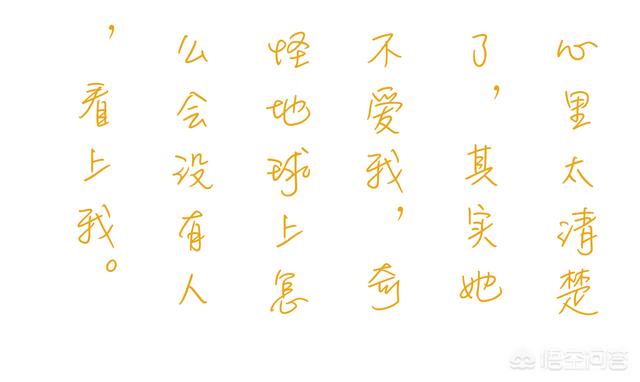 心里太清楚
了，其实她
不爱我，奇
怪地球上怎
么会没有人
，看上我。
悟空问答